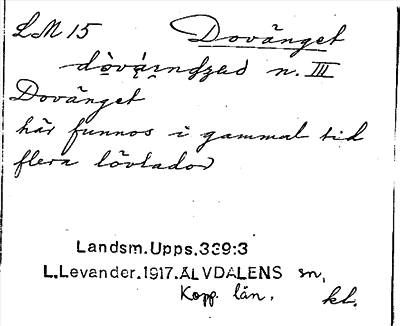 LM 15 Dovänget
n. III
Dovänget
här funnos i gammal tid
flera lövlador
Landsm.Upps.339:3
L.Levander.1917.ÄLVDALENS sn,
Kopp. län. kl.